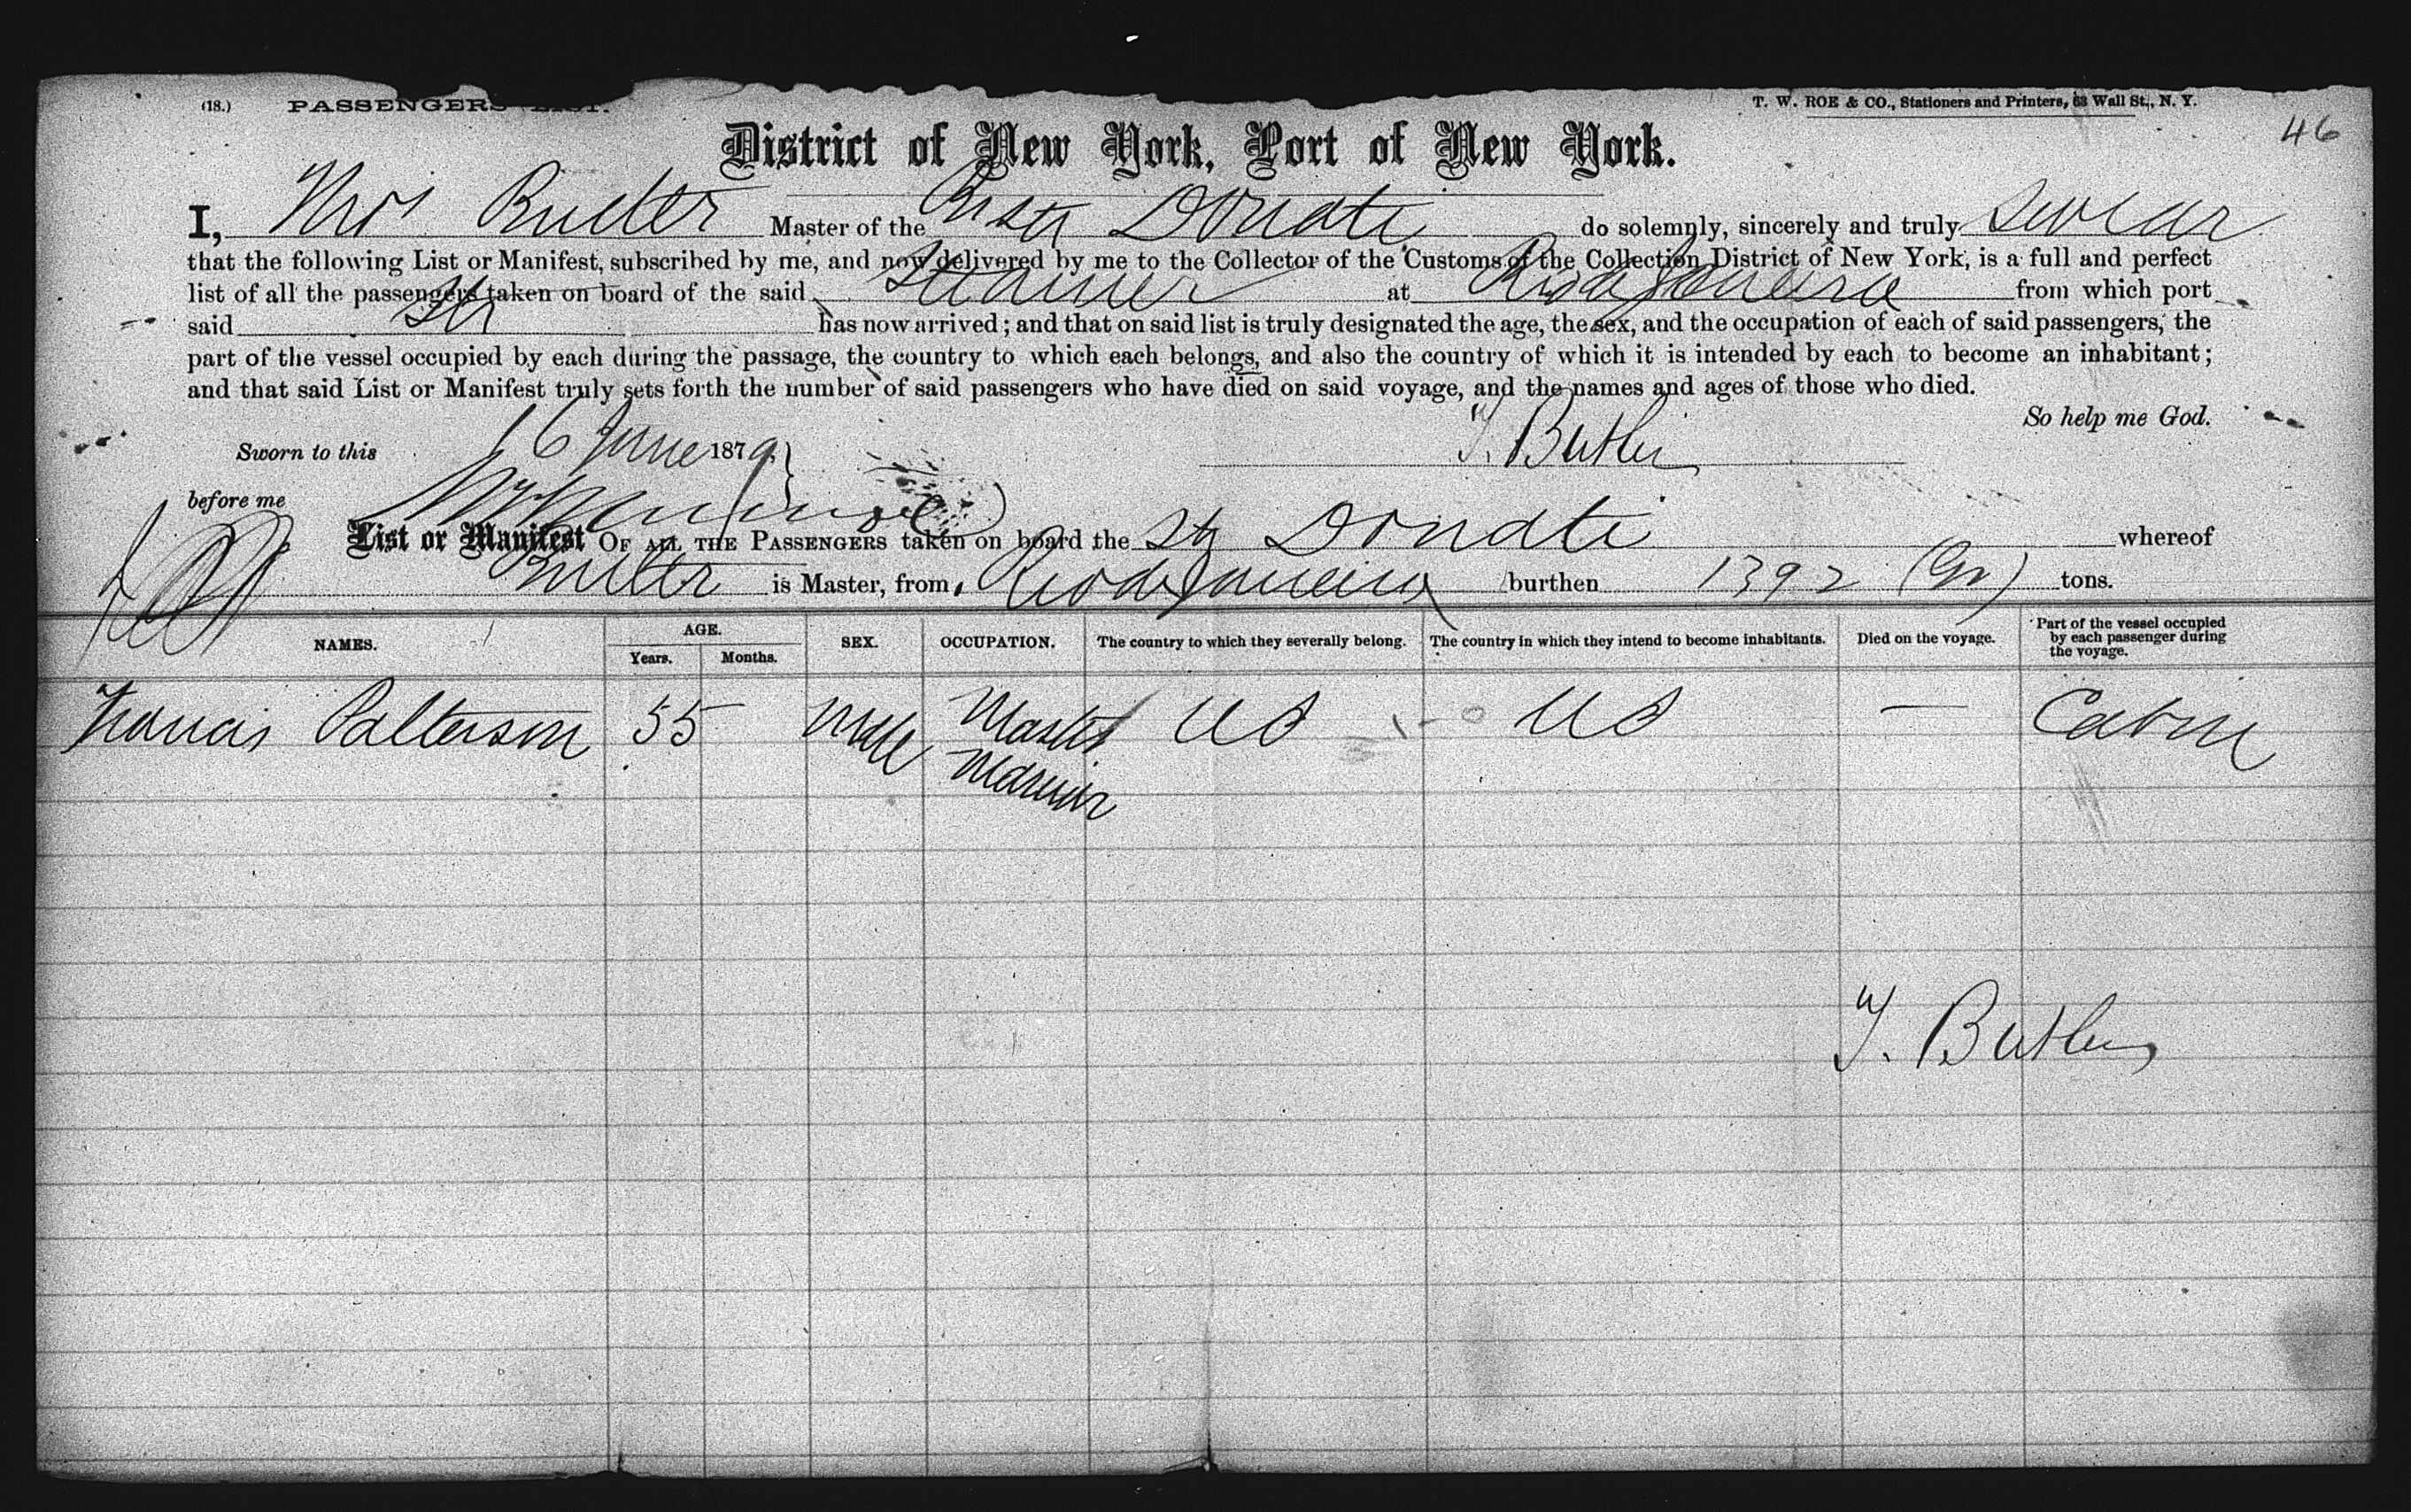 (18.) PASSENGERS LIST.
T. W. ROE & CO., Stationers and Printers, 63 Wall St., N. Y.
46
District of New York, Port of New York.
I, Thos Butler Master of the Brstr Donati do solemnly, sincerely and truly swear
that the following List or Manifest, subscribed by me, and now delivered by me to the Collector of the Customs of the Collection District of New York, is a full and perfect
list of all the passengers taken on board of the said Steamer at Rio de Janeiro from which port
said Str has now arrived; and that on said list is truly designated the age, the sex, and the occupation of each of said passengers, the
part of the vessel occupied by each during the passage, the country to which each belongs, and also the country of which it is intended by each to become an inhabitant;
and that said List or Manifest truly sets forth the number of said passengers who have died on said voyage, and the names and ages of those who died.
So help me God.
Sworn to this 16 June 1879 T. Butler
before me
List or Manifest OF ALL THE PASSENGERS taken on board the Str Donati whereof
Butler is Master, from Rio de Janeiro burthen 1392 (Gr) tons.
NAMES. AGE. Years. Months. SEX. OCCUPATION. The country to which they severally belong. The country in which they intend to become inhabitants. Died on the voyage. Part of the vessel occupied by each passenger during the voyage.
Francis Patterson 55 Male Master US US — Cabin
Mariner
T. Butler